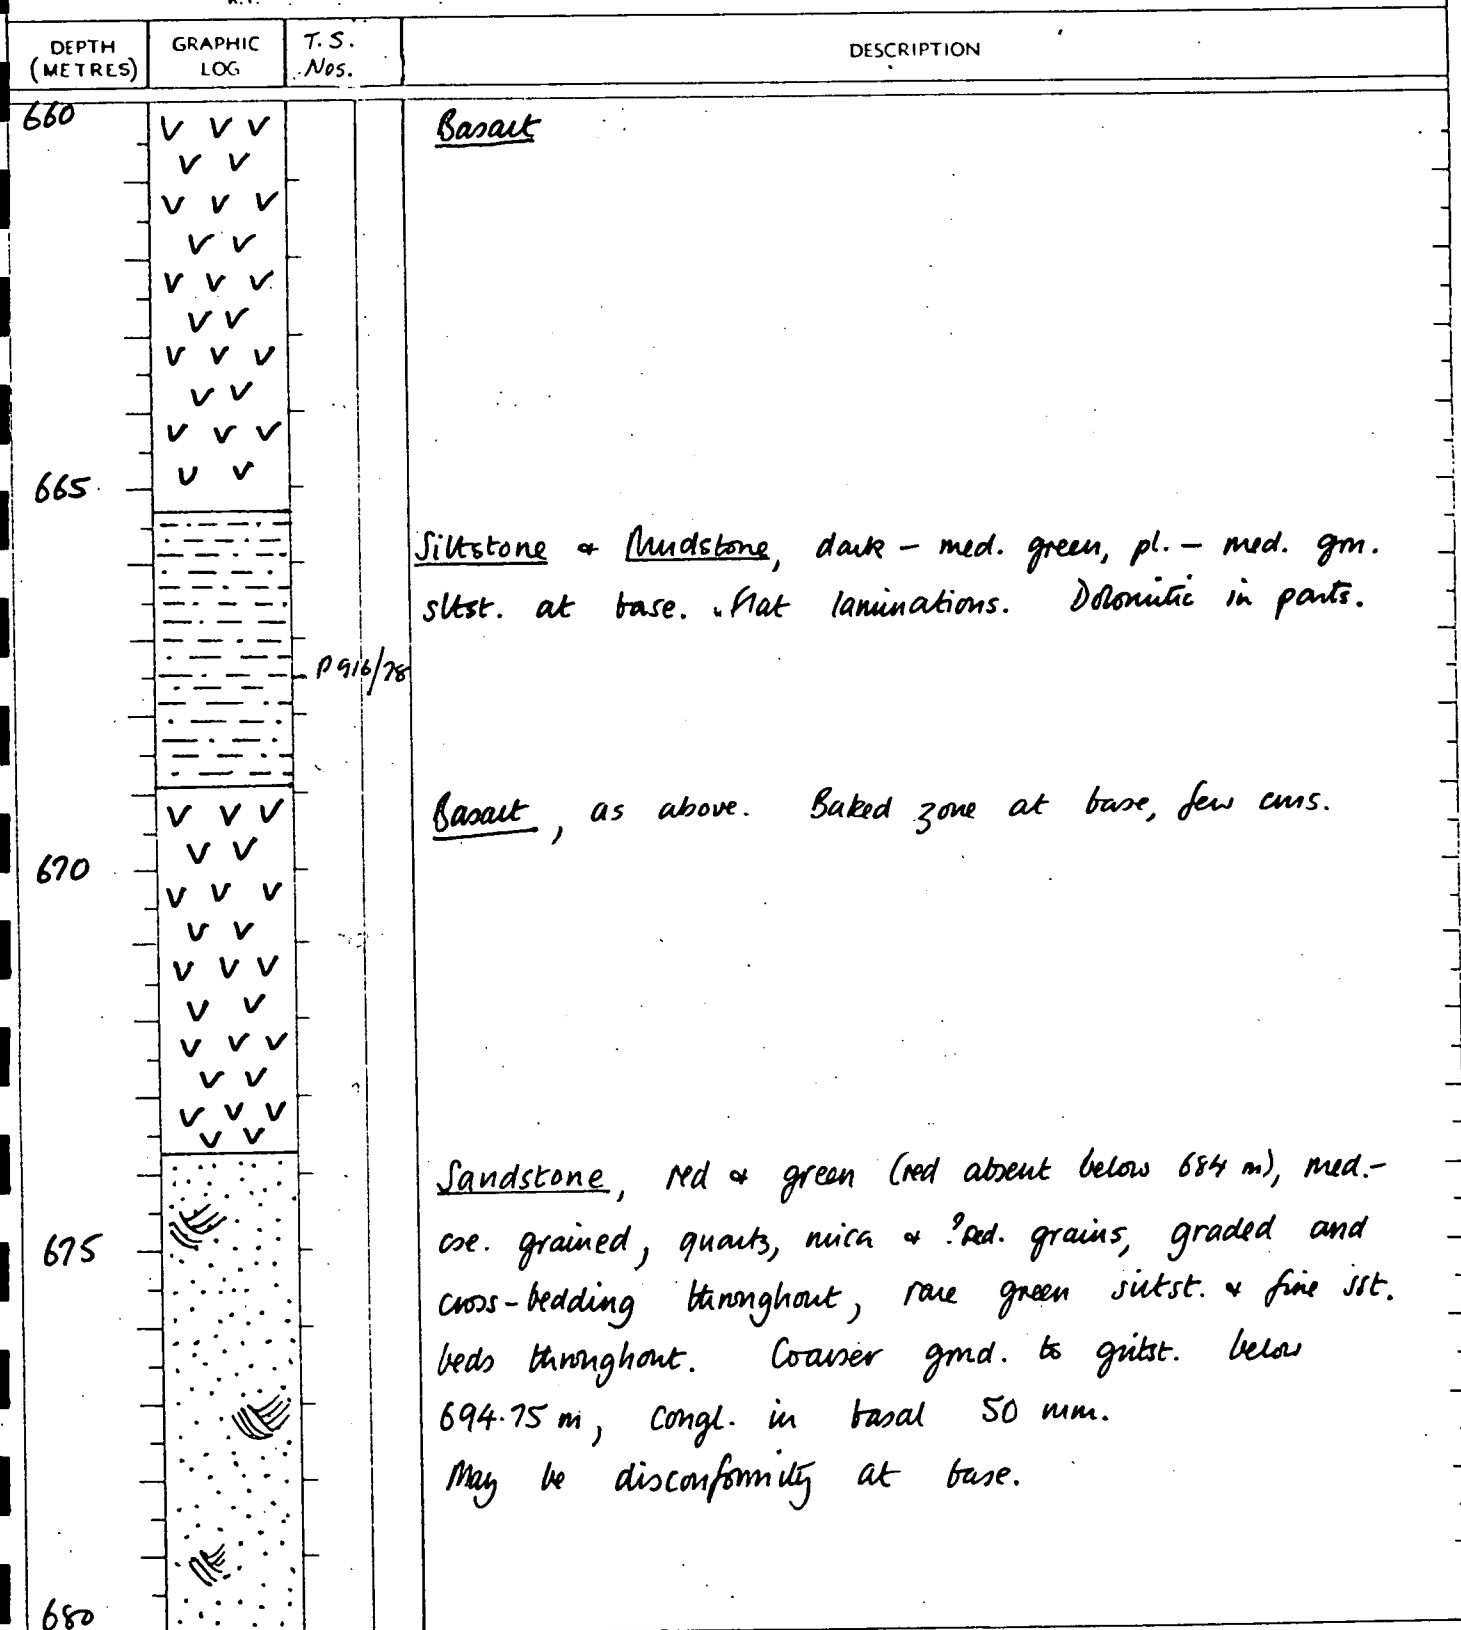 DEPTH (METRES) GRAPHIC LOG T.S. Nos. DESCRIPTION
660
Basalt
665
Siltstone & Mudstone, dark - med. green, pl. - med. grn.
sltst. at base. Flat laminations. Dolomitic in parts.
P916/78
Basalt, as above. Baked zone at base, few cms.
670
Sandstone, red & green (red absent below 684 m), med.-
675
cse. grained, quartz, mica & ? grains, graded and
cross-bedding throughout, rare green sltst. & fine sst.
beds throughout. Coarser grnd. to gritst. below
694.75 m, congl. in basal 50 mm.
May be disconformity at base.
680